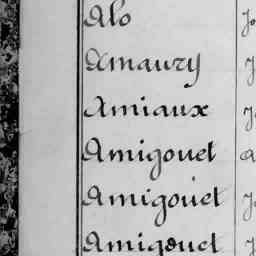 Alo
Amaury
Amiaux
Amigouet
Amigouet
Amigouet